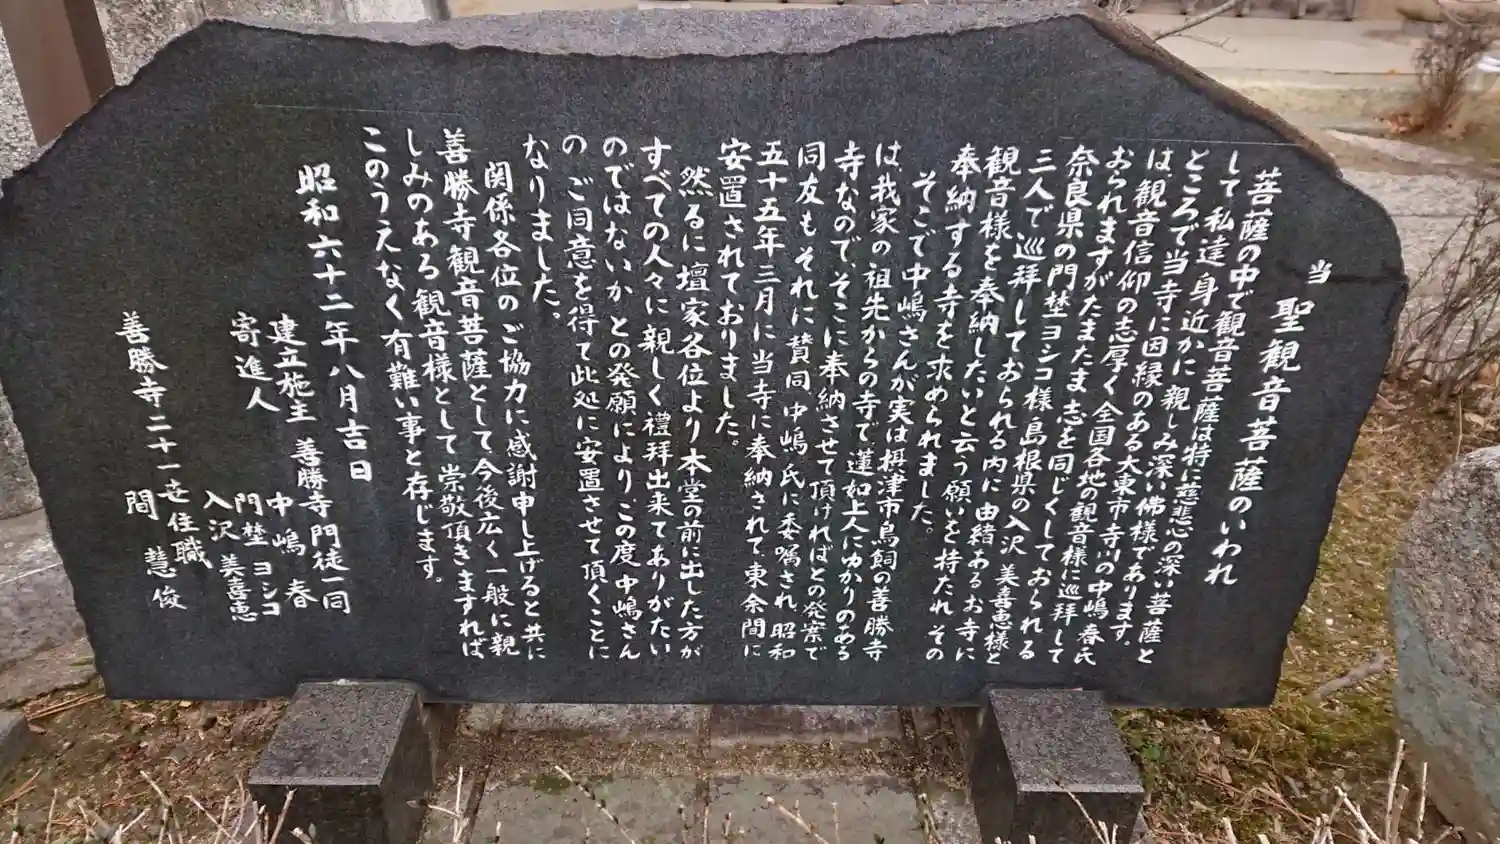 当 聖観音菩薩のいわれ
菩薩の中で観音菩薩は特に慈悲心の深い菩薩と
して私達身近かに親しみ深い佛様であります。
ところで当寺に因縁のある大東市寺川の中嶋春氏
は観音信仰の志厚く全国各地の観音様に巡拝して
おられますがたまたま志を同じくしておられる
奈良県の門埜ヨシコ様島根県の入沢美喜恵様と
三人で巡拝しておられる内に由緒あるお寺に
観音様を奉納したいと云う願いを持たれその
奉納する寺を求められました。
そこで中嶋さんが実は摂津市鳥飼の善勝寺
は我家の祖先からの寺で蓮如上人にゆかりのある
寺なのでそこに奉納させて頂ければとの発案で
同友もそれに賛同中嶋氏に委嘱され昭和
五十五年三月に当寺に奉納されて東余間に
安置されておりました。
然るに壇家各位より本堂の前に出した方が
すべての人々に親しく禮拝出来てありがたい
のではないかとの発願により、この度中嶋さん
のご同意を得て此処に安置させて頂くことに
なりました。
関係各位のご協力に感謝申し上げると共に
善勝寺観音菩薩として今後広く一般に親
しみのある観音様として崇敬頂きますれば
このうえなく有難い事と存じます。
昭和六十二年八月吉日
建立施主 善勝寺門徒一同
寄進人 中嶋 春
門埜 ヨシコ
入沢 美喜恵
善勝寺二十一世住職
間 慧俊